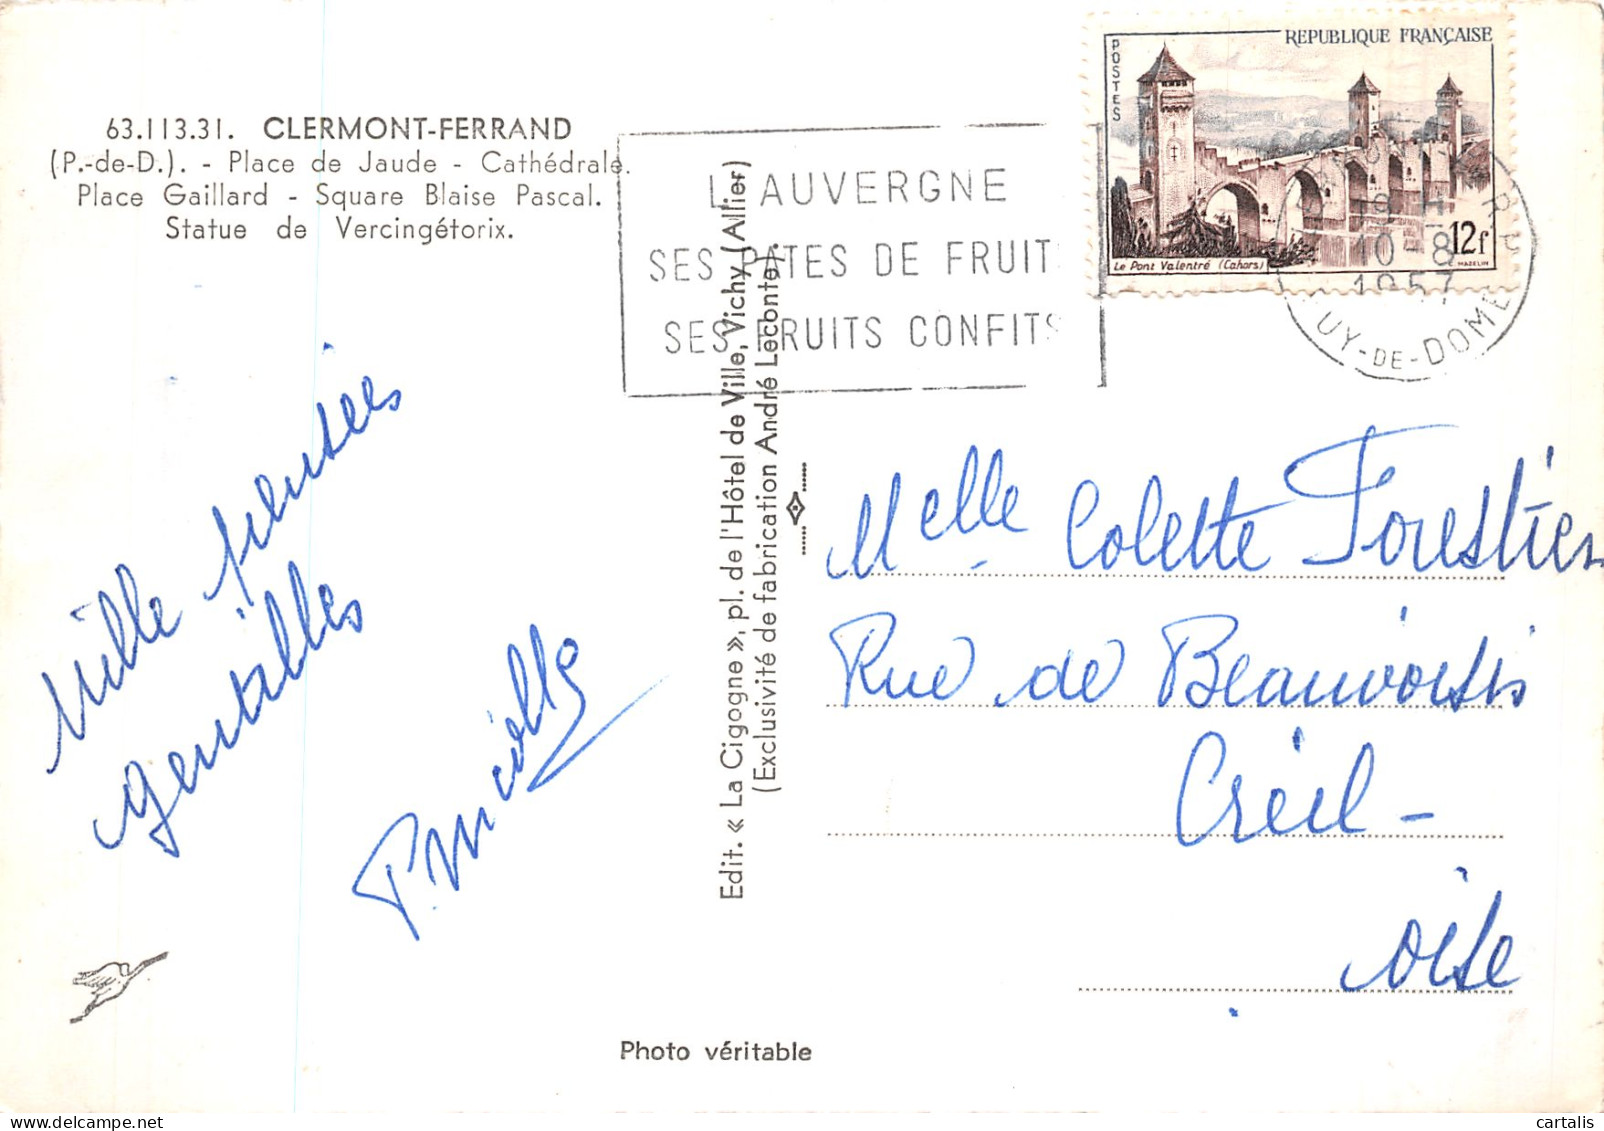 63.113.31. CLERMONT-FERRAND
(P.-de-D.). - Place de Jaude - Cathédrale.
Place Gaillard - Square Blaise Pascal.
Statue de Vercingétorix.
L'AUVERGNE
SES PATES DE FRUIT
SES FRUITS CONFITS
POSTES
REPUBLIQUE FRANÇAISE
12f
Le Pont Valentré (Cahors)
MAZELIN
19 H
10-8
1957
UY-DE-DOME
Edit. « La Cigogne », pl. de l'Hôtel de Ville, Vichy (Allier)
(Exclusivité de fabrication André Leconte).
Mille pensées
gentilles
Melle Colette Forestier
Rue de Beauvoisis
Creil -
Oise
Photo véritable
cartalis
www.delcampe.net